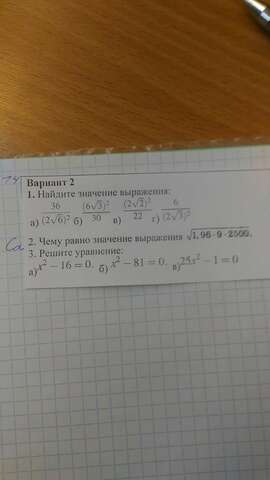 Вариант 2
1. Найдите значение выражения:
а) 36/(2√6)² б) (6√3)²/30 в) (2√2)²/22 г) 6/(2√3)²
2. Чему равно значение выражения √1,96·9·2500.
3. Решите уравнение:
а) x² − 16 = 0. б) x² − 81 = 0. в) 25x² − 1 = 0